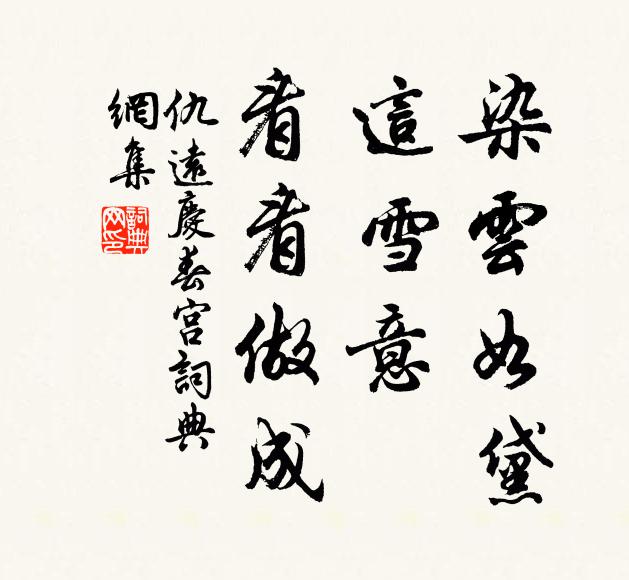 染雲如黛
這雪意
看看做成
仇遠慶春宮詞典
網集
詞典
网印